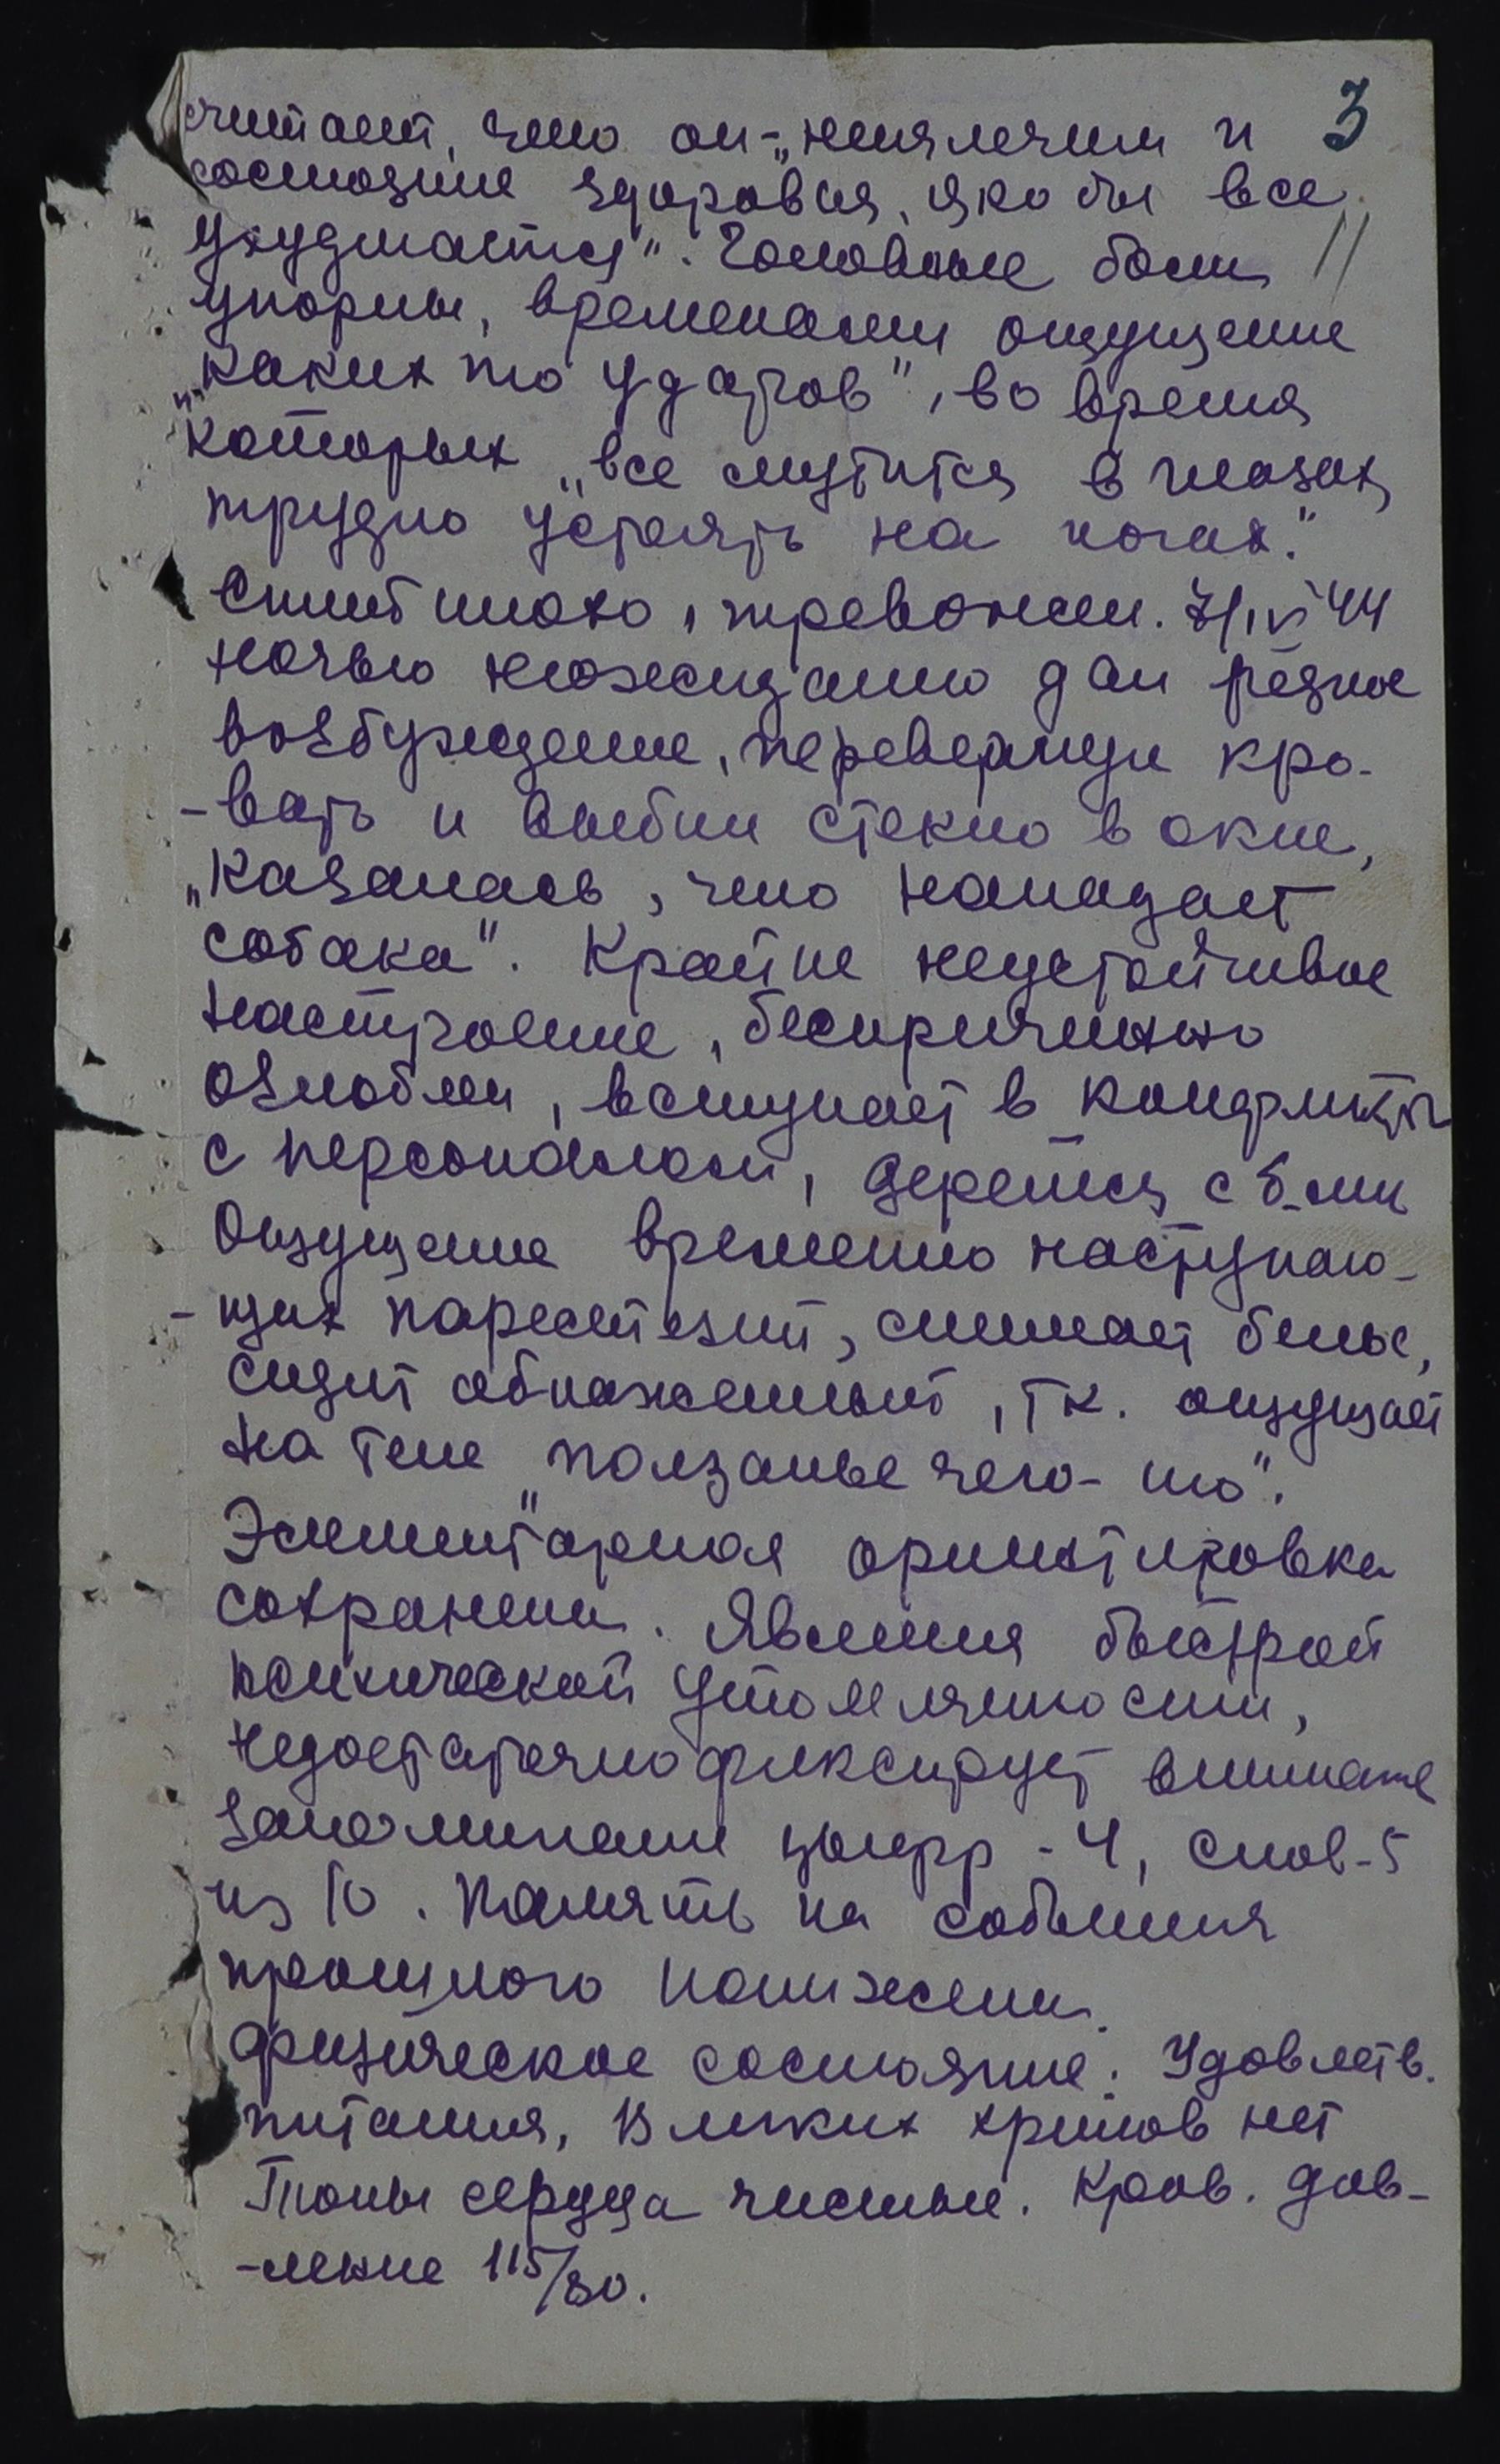 считает, что он - „неизлечим и 3
состояние здоровья, якобы все
ухудшается". Головные боли 11
упорны, временами ощущение
„каких то ударов", во время
которых „все мутится в глазах,
трудно устоять на ногах."
Спит плохо, тревожен. 7/IV 44
ночью неожиданно дал резкое
возбуждение, перевернул кро-
-вать и выбил стекло в окне,
„казалась, что нападает
собака". Крайне неустойчивое
настроение, беспричинно
озлоблен, вступает в конфликты
с персоналом, дерется с б-ми
Ощущение временно наступаю-
-щих парестезий, снимает белье,
сидит обнаженный, т к. ощущает
на теле „ползанье чего-то".
Элементарная ориентировка
сохранена. Явления быстрой
психической утомляемости,
недостаточно фиксирует внимание
запоминание цыфр - 4, слов - 5
из 10. Память на события
прошлого понижена.
Физическое состояние: Удовлетв.
питания, В легких хрипов нет
Тоны сердца чистые. Кров. дав-
-ление 115/80.